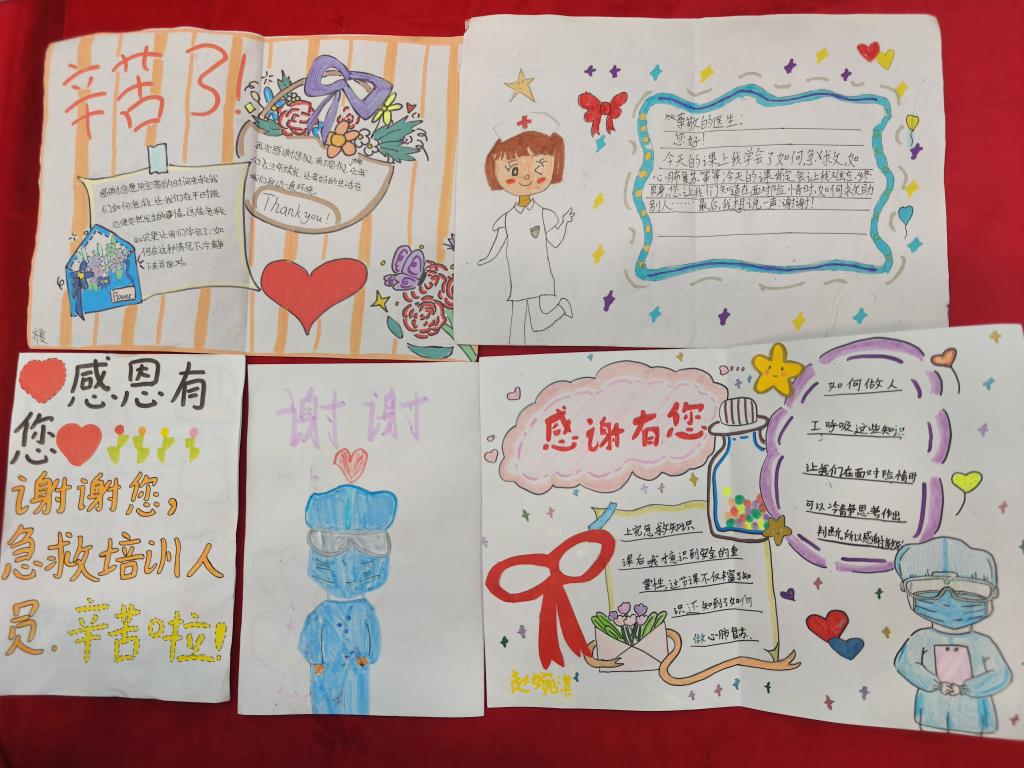 辛苦了!
感谢您愿用宝贵的时间来教我
们如何急救,让我们在平时能
应便突然发生的事情。这些急救
知识更让我们学会了:如
何在这种情况下冷静
下来并面对。
Flower
齐夏
再次感谢您们,
让美好的生活在
我们身边一直环绕。
Thank you!
尊敬的医生:
您好!
今天的课上我学会了如何急救,如
心肺复苏等等,今天的课肯定会让我
良身,您让我们知道在面对险情时,如何求助
别人……最后,我想说一声谢谢!
感恩有
您
谢谢您,
急救培训人
员.辛苦啦!
谢谢
感谢有您
上完急救知识
课后我才意识到安全的重
要性,这节课不仅丰富了知
识还知到了如何
做心肺复苏.
如何做人
工呼吸这些知识
让我们在面对险情时
可以冷静思考作出
判断,所以感谢
赵婉淇